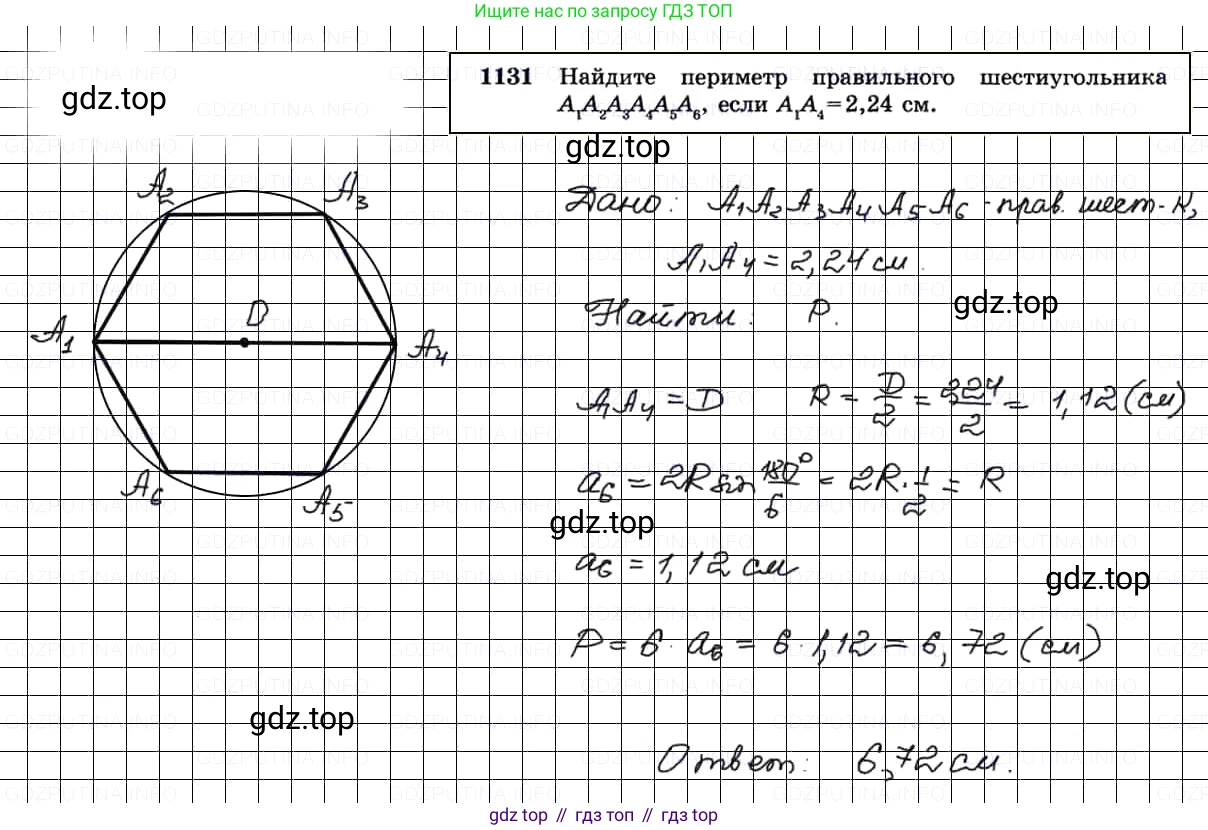 Ищите нас по запросу ГДЗ ТОП
1131 Найдите периметр правильного шестиугольника
A₁A₂A₃A₄A₅A₆, если A₁A₄=2,24 см.
gdz.top
gdz.top
A₂
A₃
Дано: A₁A₂A₃A₄A₅A₆ - прав. шест-к,
A₁A₄ = 2,24 см.
gdz.top
Найти: P.
D
A₁
A₄
A₁A₄ = D R = D/2 = 2,24/2 = 1,12 (см)
a₆ = 2R sin 180°/6 = 2R · 1/2 = R
A₆
A₅
gdz.top
a₆ = 1,12 см
gdz.top
P = 6 · a₆ = 6 · 1,12 = 6,72 (см)
gdz.top
Ответ: 6,72 см.
gdz top // гдз топ // гдз top
GDZPUTINA.INFO